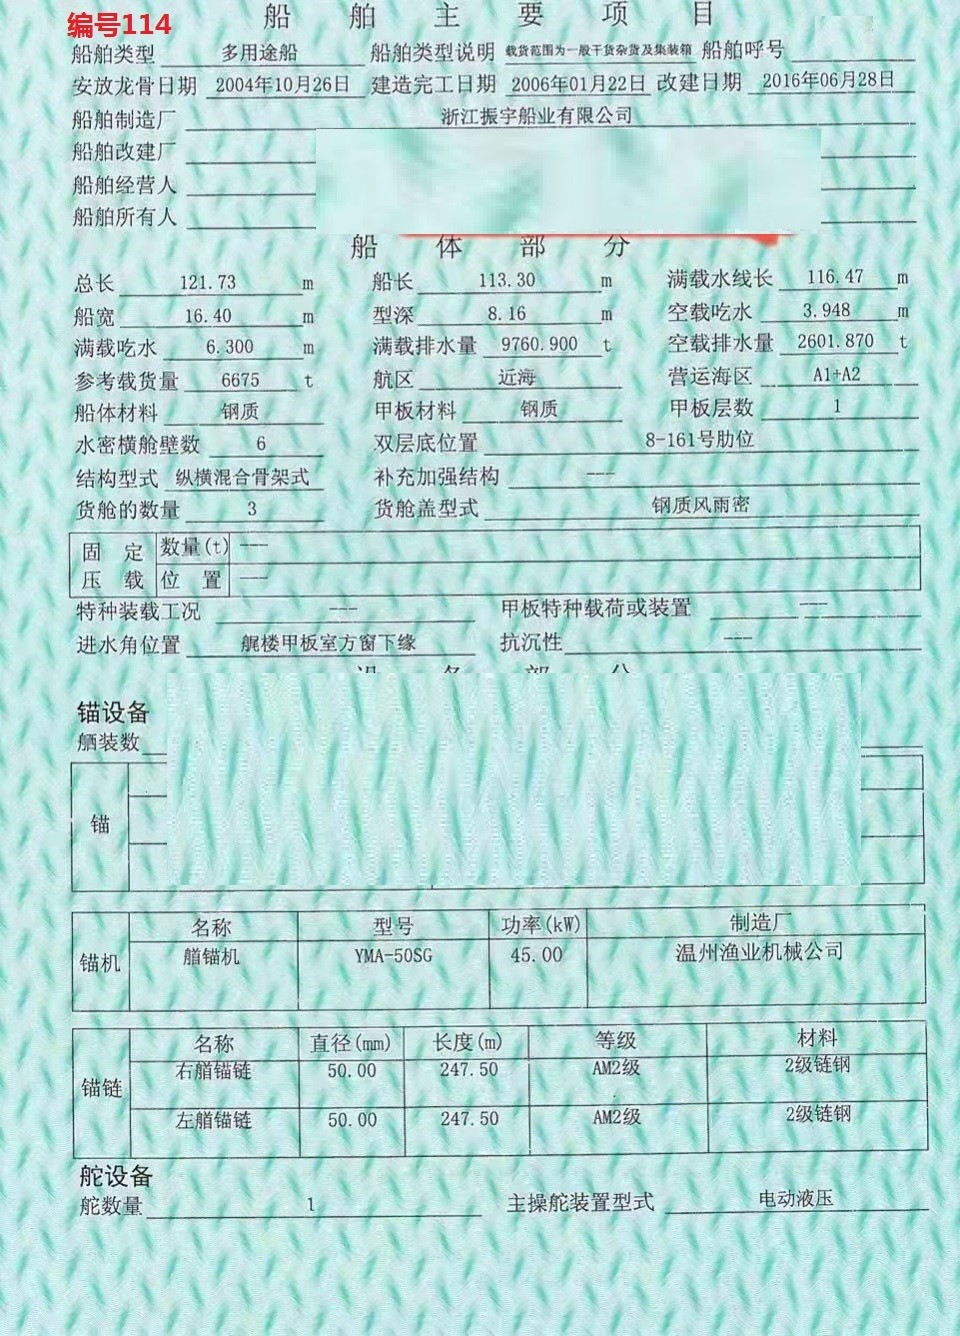 编号114
船舶主要项目
船舶类型 多用途船 船舶类型说明 载货范围为一般干货杂货及集装箱 船舶呼号
安放龙骨日期 2004年10月26日 建造完工日期 2006年01月22日 改建日期 2016年06月28日
船舶制造厂 浙江振宇船业有限公司
船舶改建厂
船舶经营人
船舶所有人
船体部分
总长 121.73 m 船长 113.30 m 满载水线长 116.47 m
船宽 16.40 m 型深 8.16 m 空载吃水 3.948 m
满载吃水 6.300 m 满载排水量 9760.900 t 空载排水量 2601.870 t
参考载货量 6675 t 航区 近海 营运海区 A1+A2
船体材料 钢质 甲板材料 钢质 甲板层数 1
水密横舱壁数 6 双层底位置 8-161号肋位
结构型式 纵横混合骨架式 补充加强结构 ---
货舱的数量 3 货舱盖型式 钢质风雨密
固定 数量(t) ---
压载 位置 ---
特种装载工况 --- 甲板特种载荷或装置 ---
进水角位置 艉楼甲板室方窗下缘 抗沉性 ---
锚设备
舾装数
锚
名称 型号 功率(kW) 制造厂
锚机 艏锚机 YMA-50SG 45.00 温州渔业机械公司
名称 直径(mm) 长度(m) 等级 材料
锚链 右艏锚链 50.00 247.50 AM2级 2级链钢
左艏锚链 50.00 247.50 AM2级 2级链钢
舵设备
舵数量 1 主操舵装置型式 电动液压